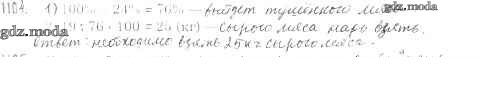 1104. 1) 100% - 24% = 76% - выйдет тушёного мяса gdz.moda
gdz.moda 2) 19 : 76 · 100 = 25 (кг) - сырого мяса надо взять.
Ответ: необходимо взять 25 кг сырого мяса.